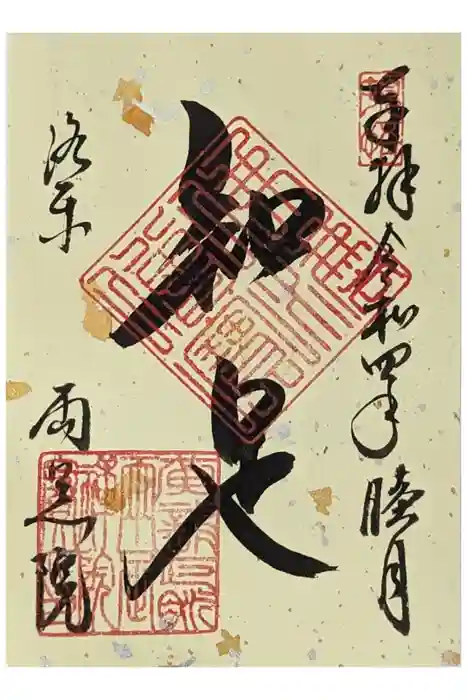 奉拝 令和四年 睦月
知足
洛東 両足院